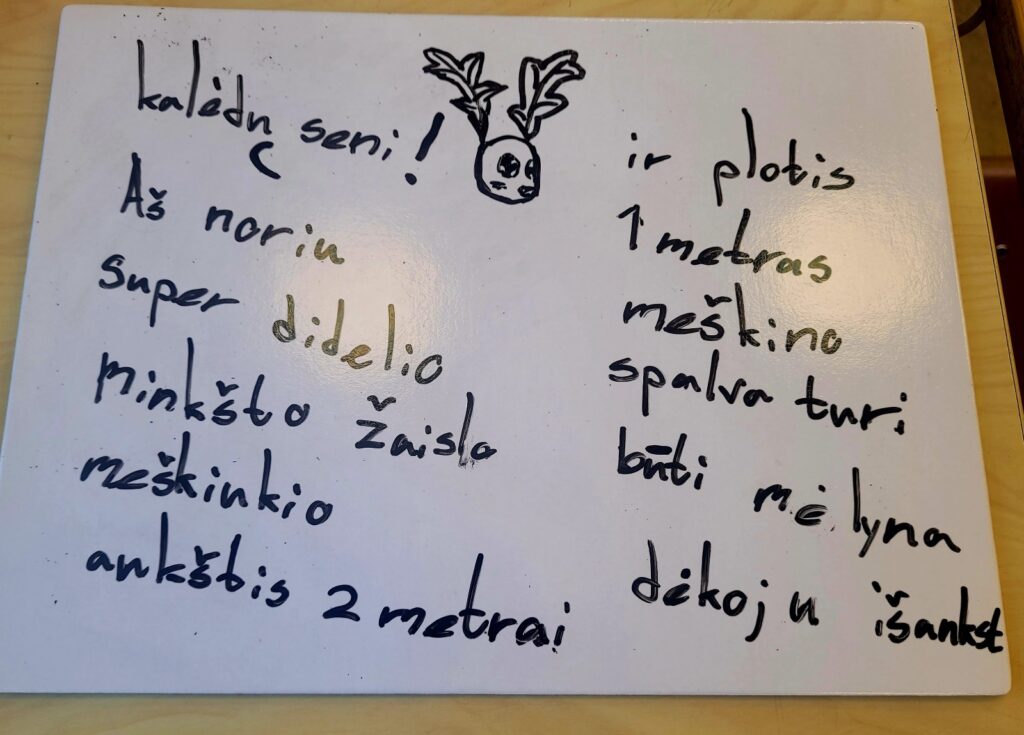 kalėdų seni!
Aš noriu
super didelio
minkšto žaislo
meškinkio
ankštis 2 metrai
ir plotis
1 metras
meškino
spalva turi
būti mėlyna
dėkoju išankst